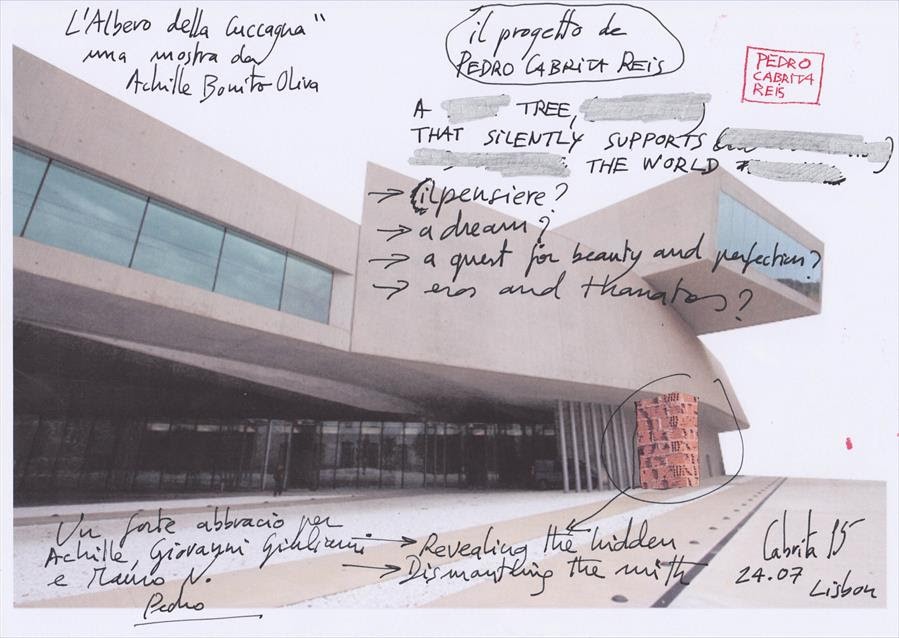 L'Albero della Cuccagna"
una mostra da
Achille Bonito Oliva
il progetto de
PEDRO CABRITA REIS
PEDRO
CABRITA
REIS
A TREE,
THAT SILENTLY SUPPORTS
THE WORLD
→ il pensiere?
→ a dream?
→ a quest for beauty and perfection?
→ eros and thanatos?
Un forte abbracio per
Achille, Giovanni Giuliani
e Mauro N.
Pedro
→ Revealing the hidden
→ Dismanthling the mith
Cabrita 15
24.07
Lisbon